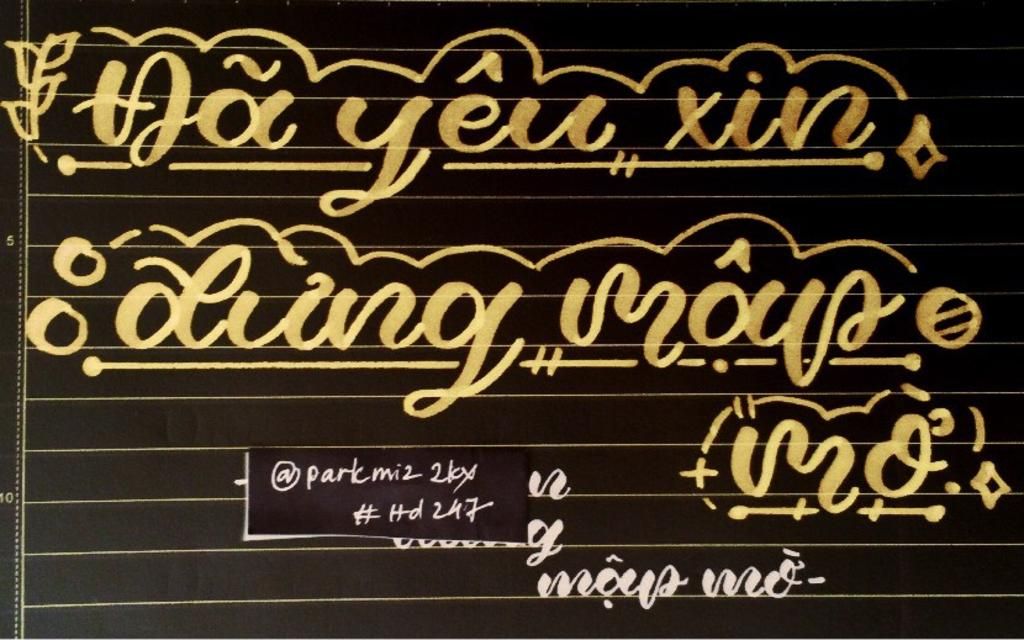 Đã yêu xin
đừng mập
mờ.
@parkmi2 2kx
# Hd 247
n
g
mập mờ-
5
10